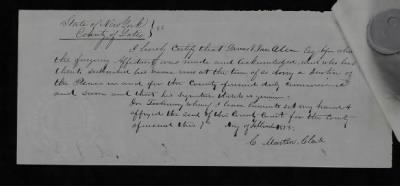 State of New York }
County of Yates } ss
I hereby Certify that James V. Van Allen Esq before whom
the foregoing affidavit was made and acknowledged, and who has
thereto subscribed his name was at the time of so doing a Justice of
the Peace in and for the County aforesaid duly commissioned
and sworn and that his signature thereto is genuine.
In Testimony whereof I have hereunto set my hand &
affixed the seal of the County Court for the County
aforesaid this day of
Martin Clerk